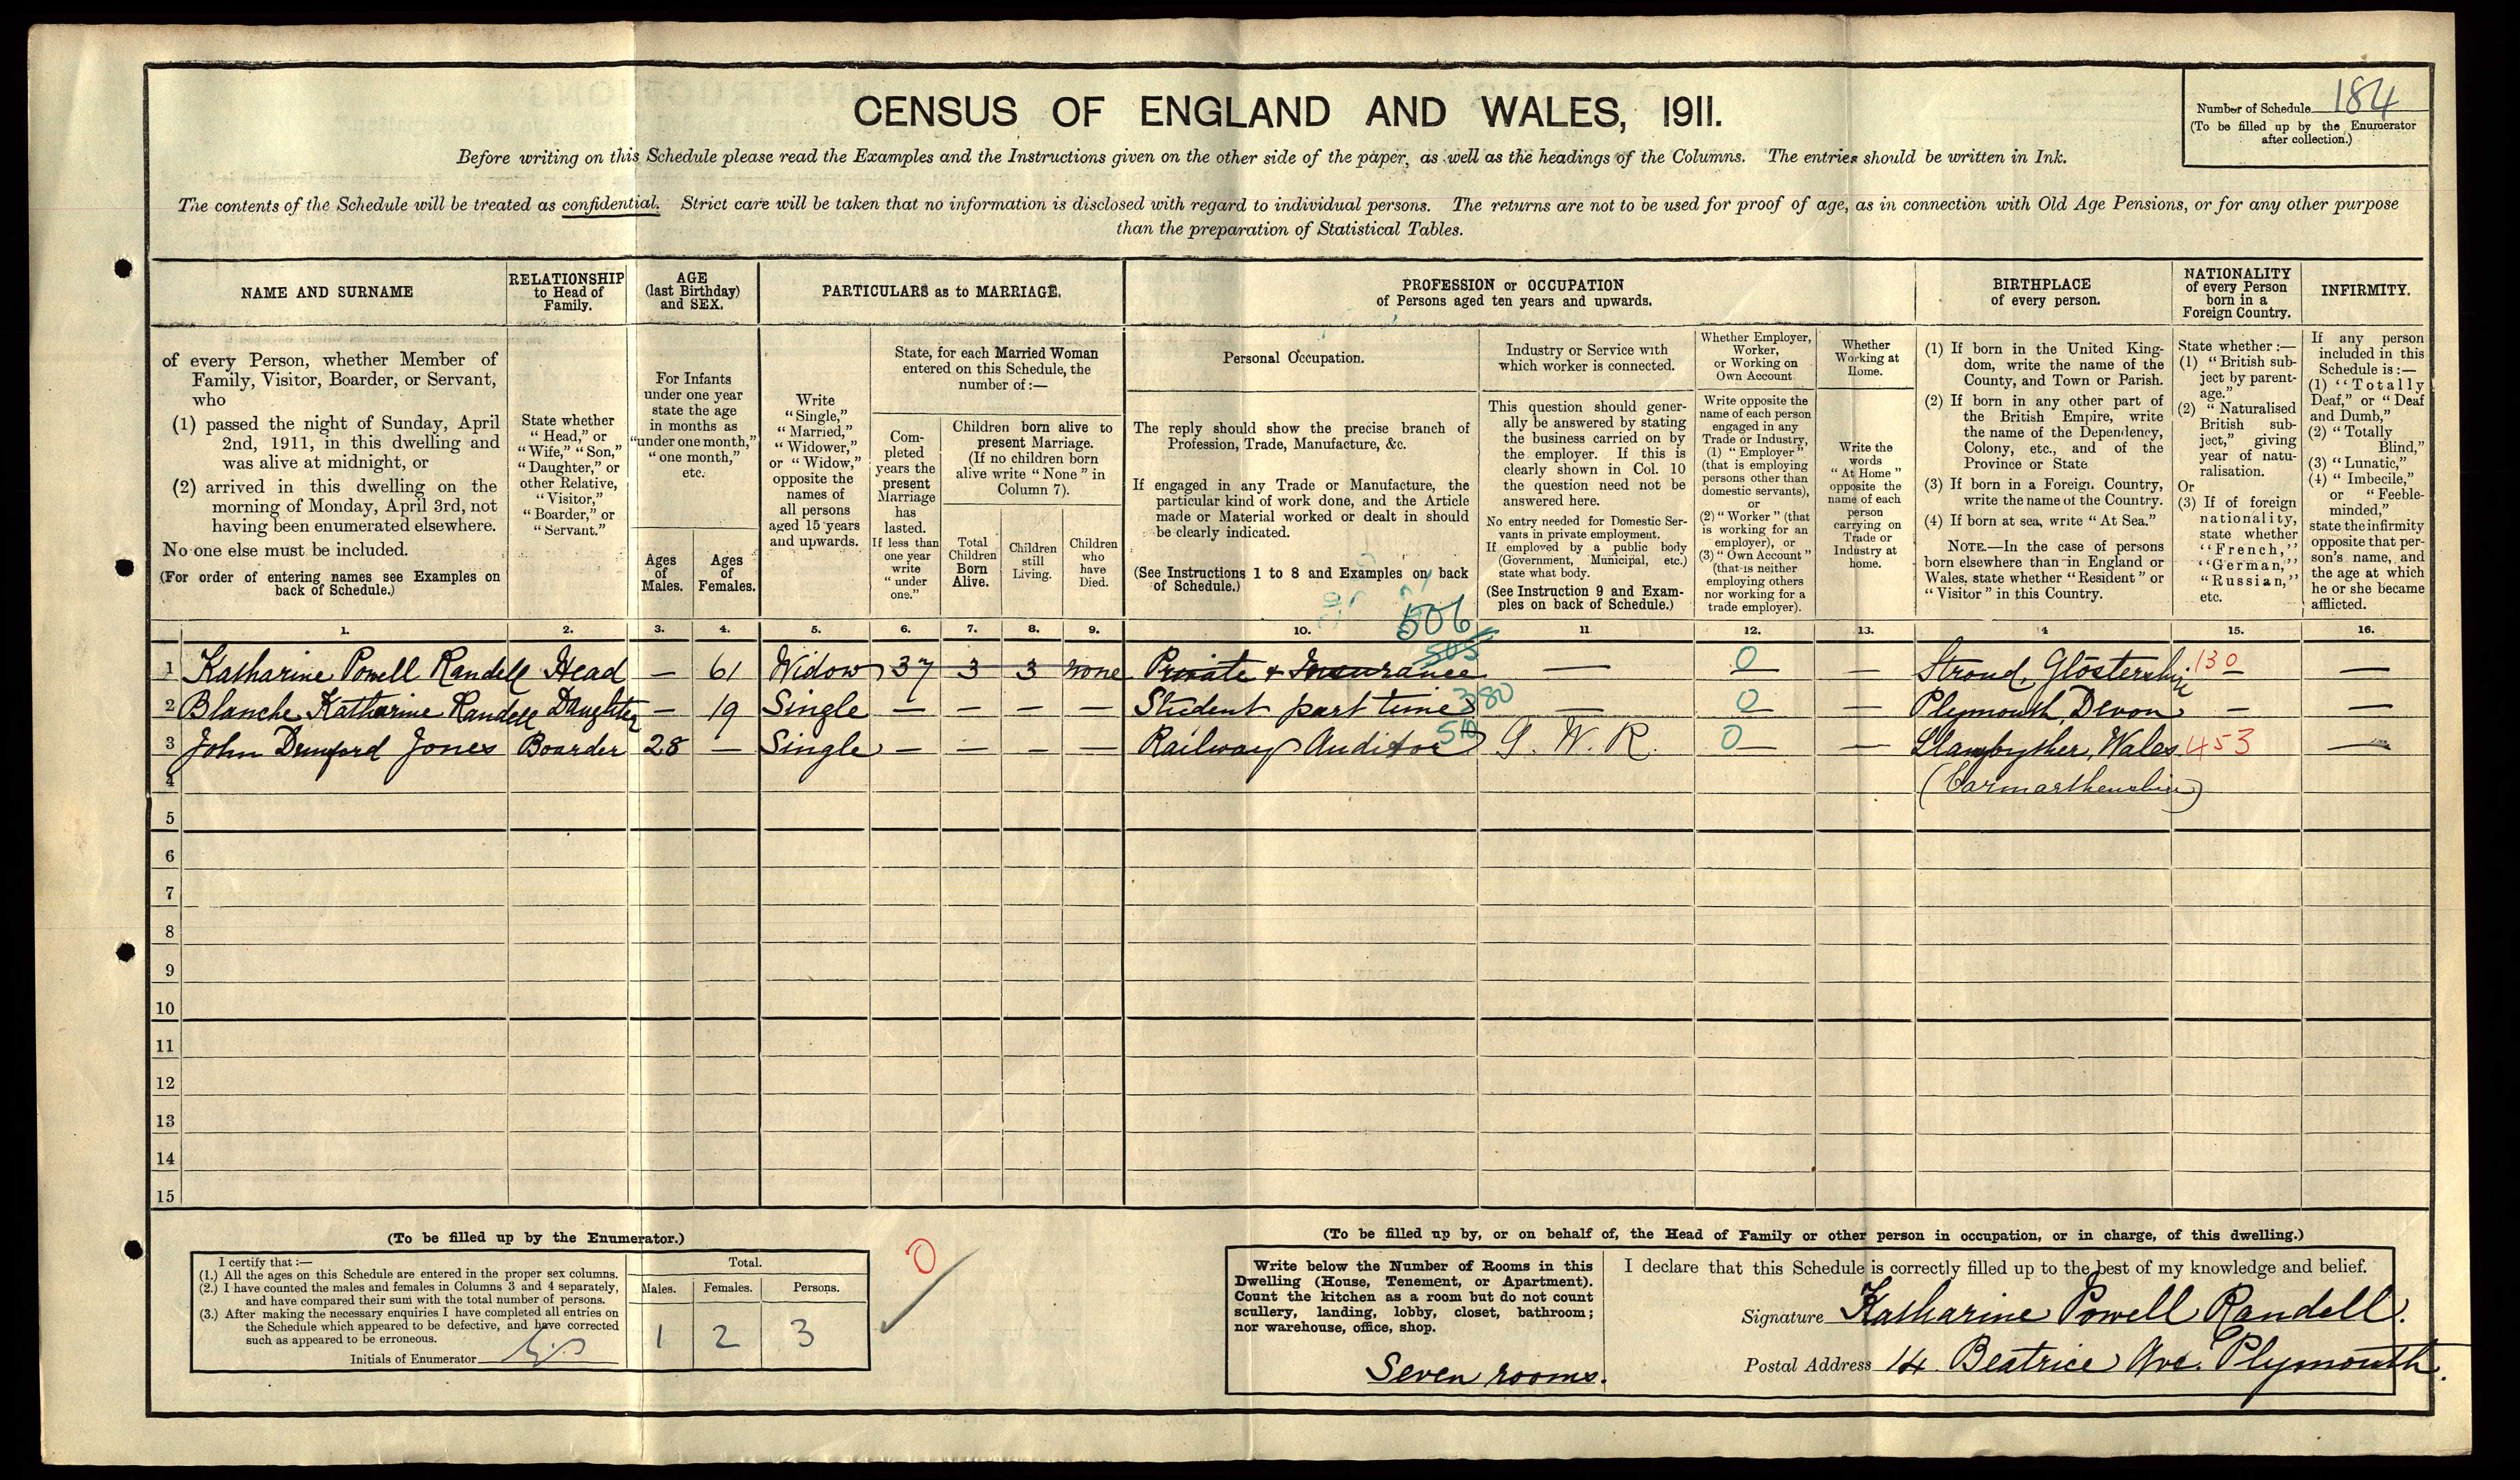 CENSUS OF ENGLAND AND WALES, 1911.
Number of Schedule 184
(To be filled up by the Enumerator
after collection.)
Before writing on this Schedule please read the Examples and the Instructions given on the other side of the paper, as well as the headings of the Columns. The entries should be written in Ink.
The contents of the Schedule will be treated as confidential. Strict care will be taken that no information is disclosed with regard to individual persons. The returns are not to be used for proof of age, as in connection with Old Age Pensions, or for any other purpose
than the preparation of Statistical Tables.
NAME AND SURNAME
RELATIONSHIP
to Head of
Family.
AGE
(last Birthday)
and SEX.
PARTICULARS as to MARRIAGE.
PROFESSION or OCCUPATION
of Persons aged ten years and upwards.
BIRTHPLACE
of every person.
NATIONALITY
of every Person
born in a
Foreign Country.
INFIRMITY.
of every Person, whether Member of
Family, Visitor, Boarder, or Servant,
who
(1) passed the night of Sunday, April
2nd, 1911, in this dwelling and
was alive at midnight, or
(2) arrived in this dwelling on the
morning of Monday, April 3rd, not
having been enumerated elsewhere.
No one else must be included.
(For order of entering names see Examples on
back of Schedule.)
State whether
"Head," or
"Wife," "Son,"
"Daughter," or
other Relative,
"Visitor,"
"Boarder," or
"Servant."
For Infants
under one year
state the age
in months as
"under one month,"
"one month,"
etc.
Ages
of
Males.
Ages
of
Females.
Write
"Single,"
"Married,"
"Widower,"
or "Widow,"
opposite the
names of
all persons
aged 15 years
and upwards.
State, for each Married Woman
entered on this Schedule, the
number of:—
Com-
pleted
years the
present
Marriage
has
lasted.
If less than
one year
write
"under
one."
Children born alive to
present Marriage.
(If no children born
alive write "None" in
Column 7).
Total
Children
Born
Alive.
Children
still
Living.
Children
who
have
Died.
Personal Occupation.
The reply should show the precise branch of
Profession, Trade, Manufacture, &c.
If engaged in any Trade or Manufacture, the
particular kind of work done, and the Article
made or Material worked or dealt in should
be clearly indicated.
(See Instructions 1 to 8 and Examples on back
of Schedule.)
Industry or Service with
which worker is connected.
This question should gener-
ally be answered by stating
the business carried on by
the employer. If this is
clearly shown in Col. 10
the question need not be
answered here.
No entry needed for Domestic Ser-
vants in private employment.
If employed by a public body
(Government, Municipal, etc.)
state what body.
(See Instruction 9 and Exam-
ples on back of Schedule.)
Whether Employer,
Worker,
or Working on
Own Account
Write opposite the
name of each person
engaged in any
Trade or Industry,
(1) "Employer"
(that is employing
persons other than
domestic servants),
or
(2) "Worker" (that
is working for an
employer), or
(3) "Own Account"
(that is neither
employing others
nor working for a
trade employer).
Whether
Working at
Home.
Write the
words
"At Home"
opposite the
name of each
person
carrying on
Trade or
Industry at
home.
(1) If born in the United King-
dom, write the name of the
County, and Town or Parish.
(2) If born in any other part of
the British Empire, write
the name of the Dependency,
Colony, etc., and of the
Province or State
(3) If born in a Foreign Country,
write the name of the Country.
(4) If born at sea, write "At Sea."
NOTE.—In the case of persons
born elsewhere than in England or
Wales, state whether "Resident" or
"Visitor" in this Country.
State whether:—
(1) "British sub-
ject by parent-
age."
(2) "Naturalised
British sub-
ject," giving
year of natu-
ralisation.
Or
(3) If of foreign
nationality,
state whether
"French,"
"German,"
"Russian,"
etc.
If any person
included in this
Schedule is:—
(1) "Totally
Deaf," or "Deaf
and Dumb,"
(2) "Totally
Blind,"
(3) "Lunatic,"
(4) "Imbecile,"
or "Feeble-
minded,"
state the infirmity
opposite that per-
son's name, and
the age at which
he or she became
afflicted.
506
1. 2. 3. 4. 5. 6. 7. 8. 9. 10. 11 12. 13. 4 15. 16.
505
1 Katharine Powell Randell Head — 61 Widow 37 3 3 none Private & Insurance — 0 — — Stroud, Glostershire 130 — —
2 Blanche Katharine Randell Daughter — 19 Single — — — — Student part time 380 — 0 — — Plymouth, Devon — —
3 John Dunford Jones Boarder 28 — Single — — — — Railway Auditor G. W. R. 0 — — Llanybyther, Wales 453 —
4 (Carmarthenshire)
5
6
7
8
9
10
11
12
13
14
15
(To be filled up by the Enumerator.)
I certify that:—
(1.) All the ages on this Schedule are entered in the proper sex columns.
(2.) I have counted the males and females in Columns 3 and 4 separately,
and have compared their sum with the total number of persons.
(3.) After making the necessary enquiries I have completed all entries on
the Schedule which appeared to be defective, and have corrected
such as appeared to be erroneous.
Initials of Enumerator
Total.
Males. Females. Persons.
1 2 3
0
(To be filled up by, or on behalf of, the Head of Family or other person in occupation, or in charge, of this dwelling.)
Write below the Number of Rooms in this
Dwelling (House, Tenement, or Apartment).
Count the kitchen as a room but do not count
scullery, landing, lobby, closet, bathroom;
nor warehouse, office, shop.
Seven rooms.
I declare that this Schedule is correctly filled up to the best of my knowledge and belief.
Signature Katharine Powell Randell.
Postal Address 14 Beatrice Ave. Plymouth.